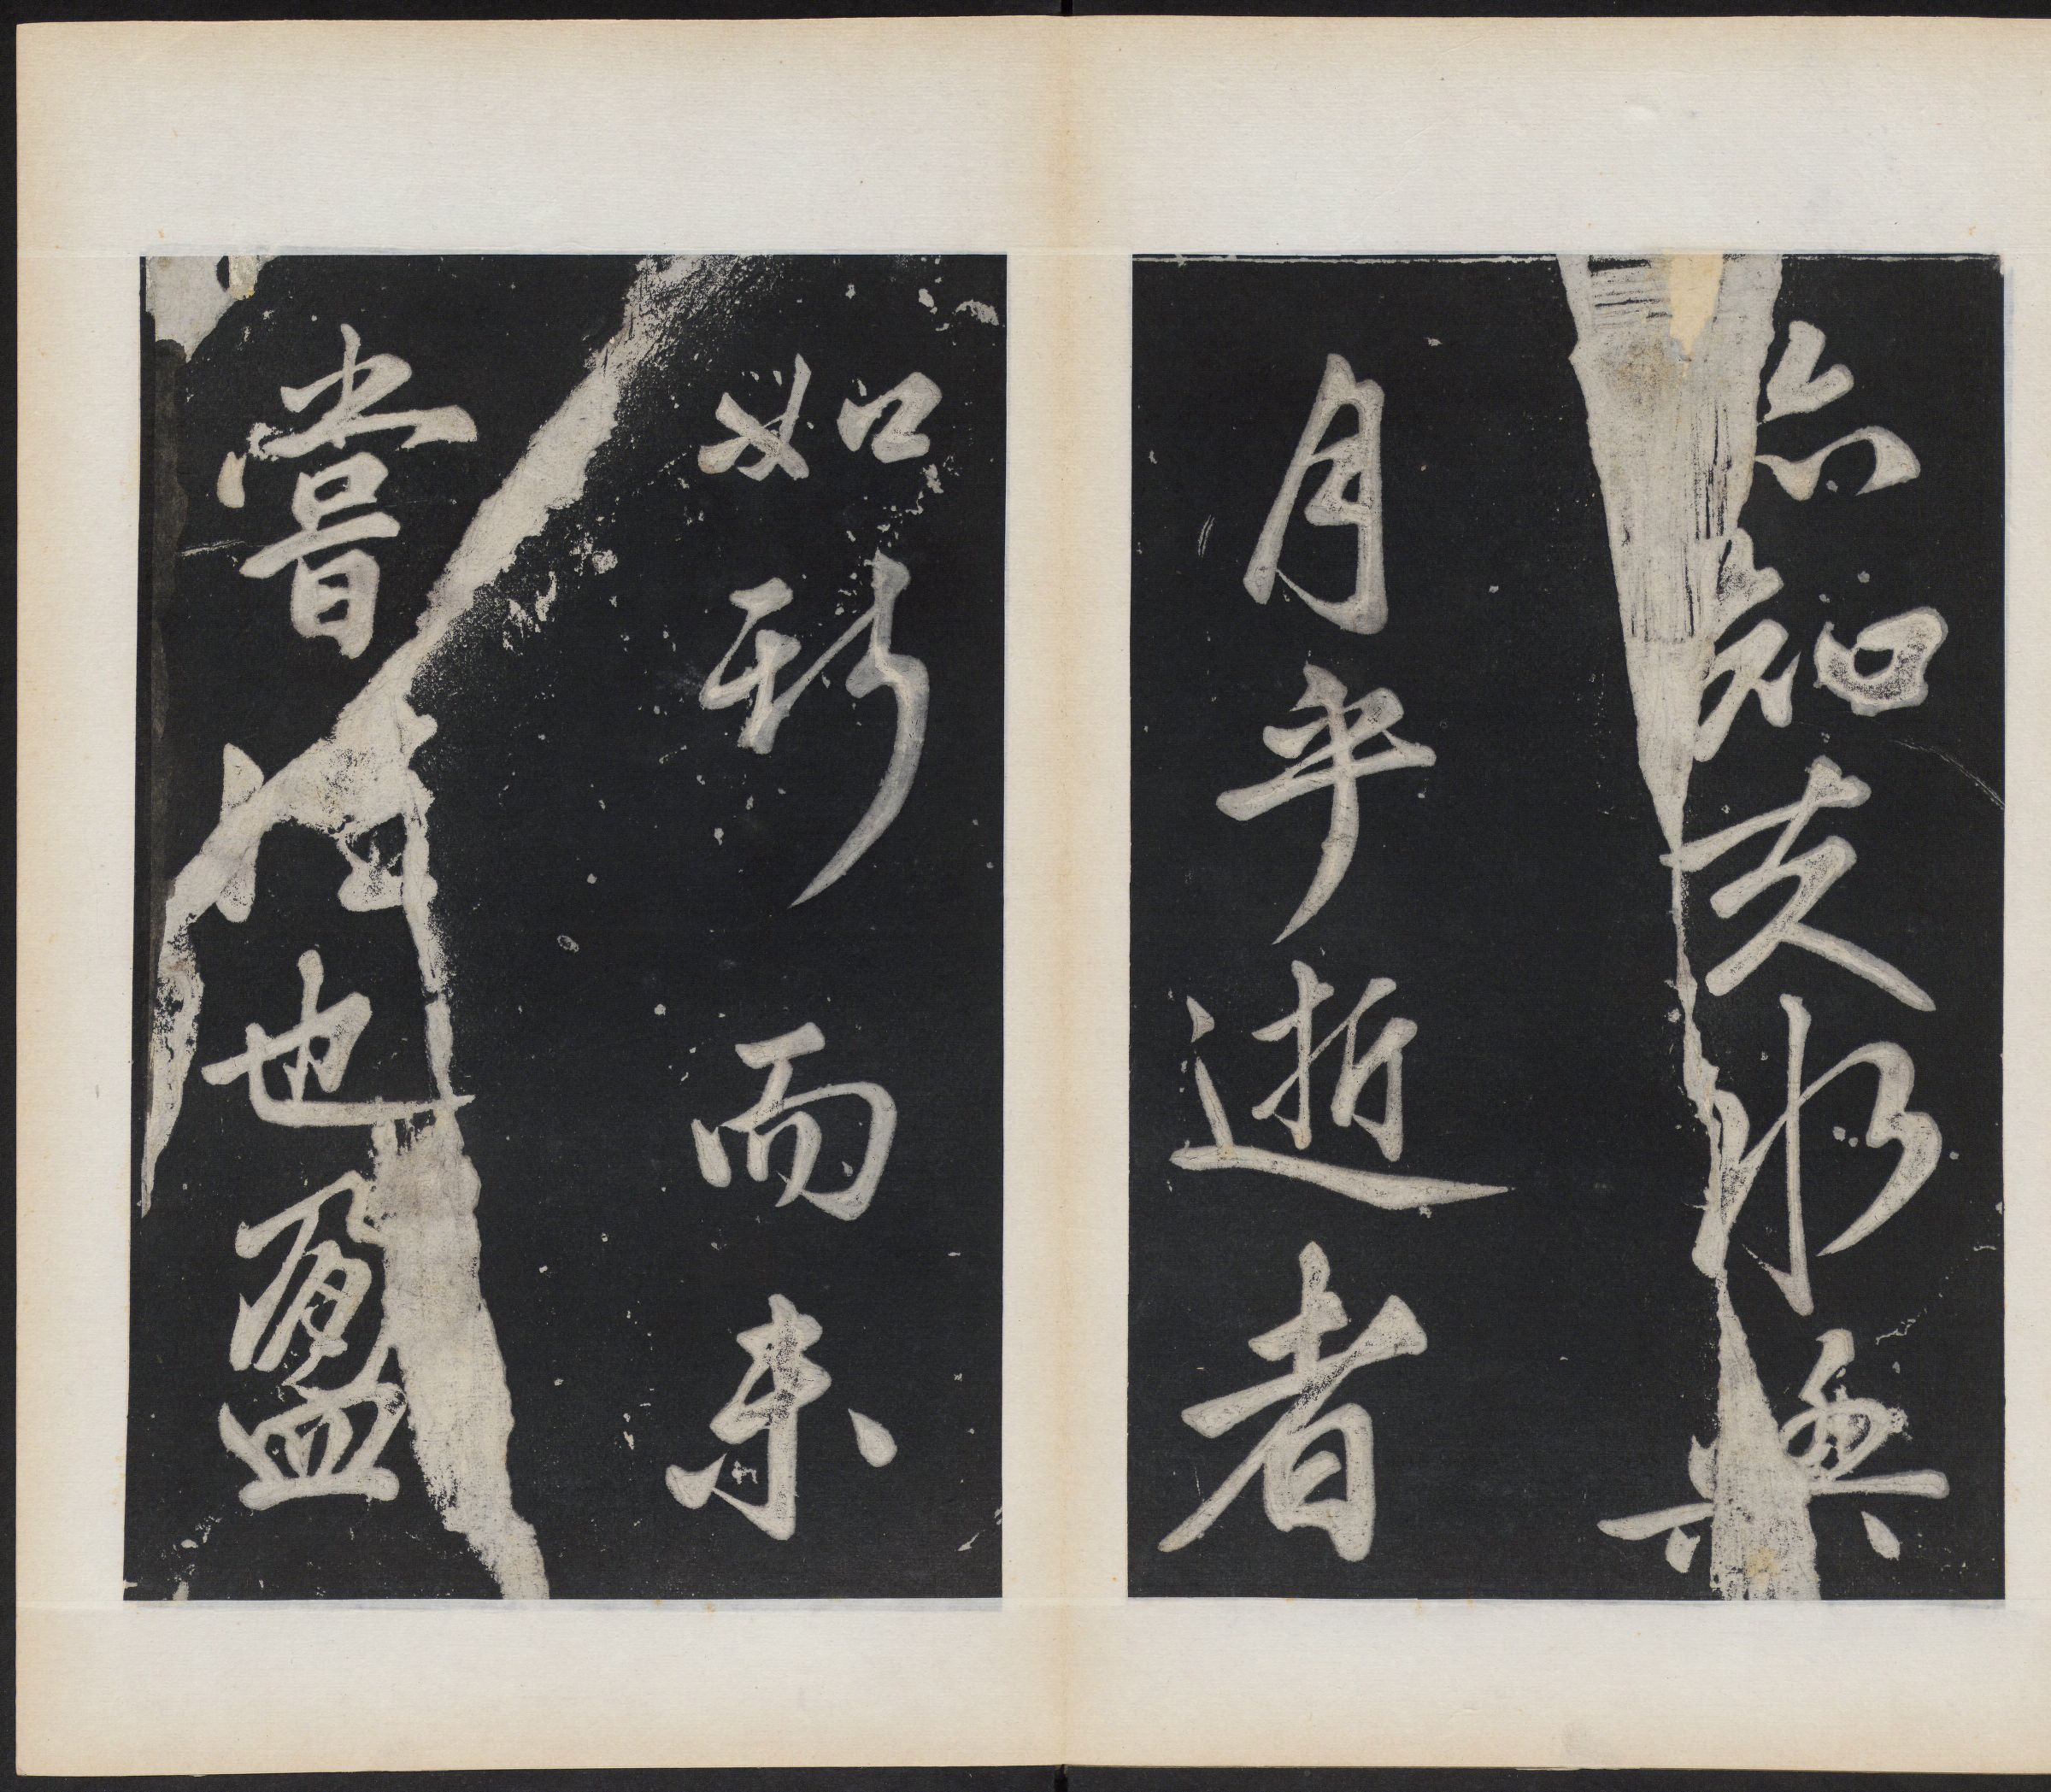 亦知夫水與
月乎逝者
如斯而未
嘗往也盈